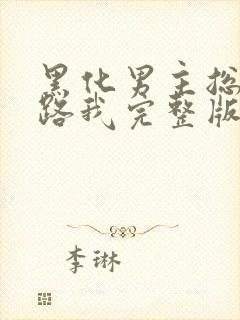 黑化男主总
路我完整版
李琳